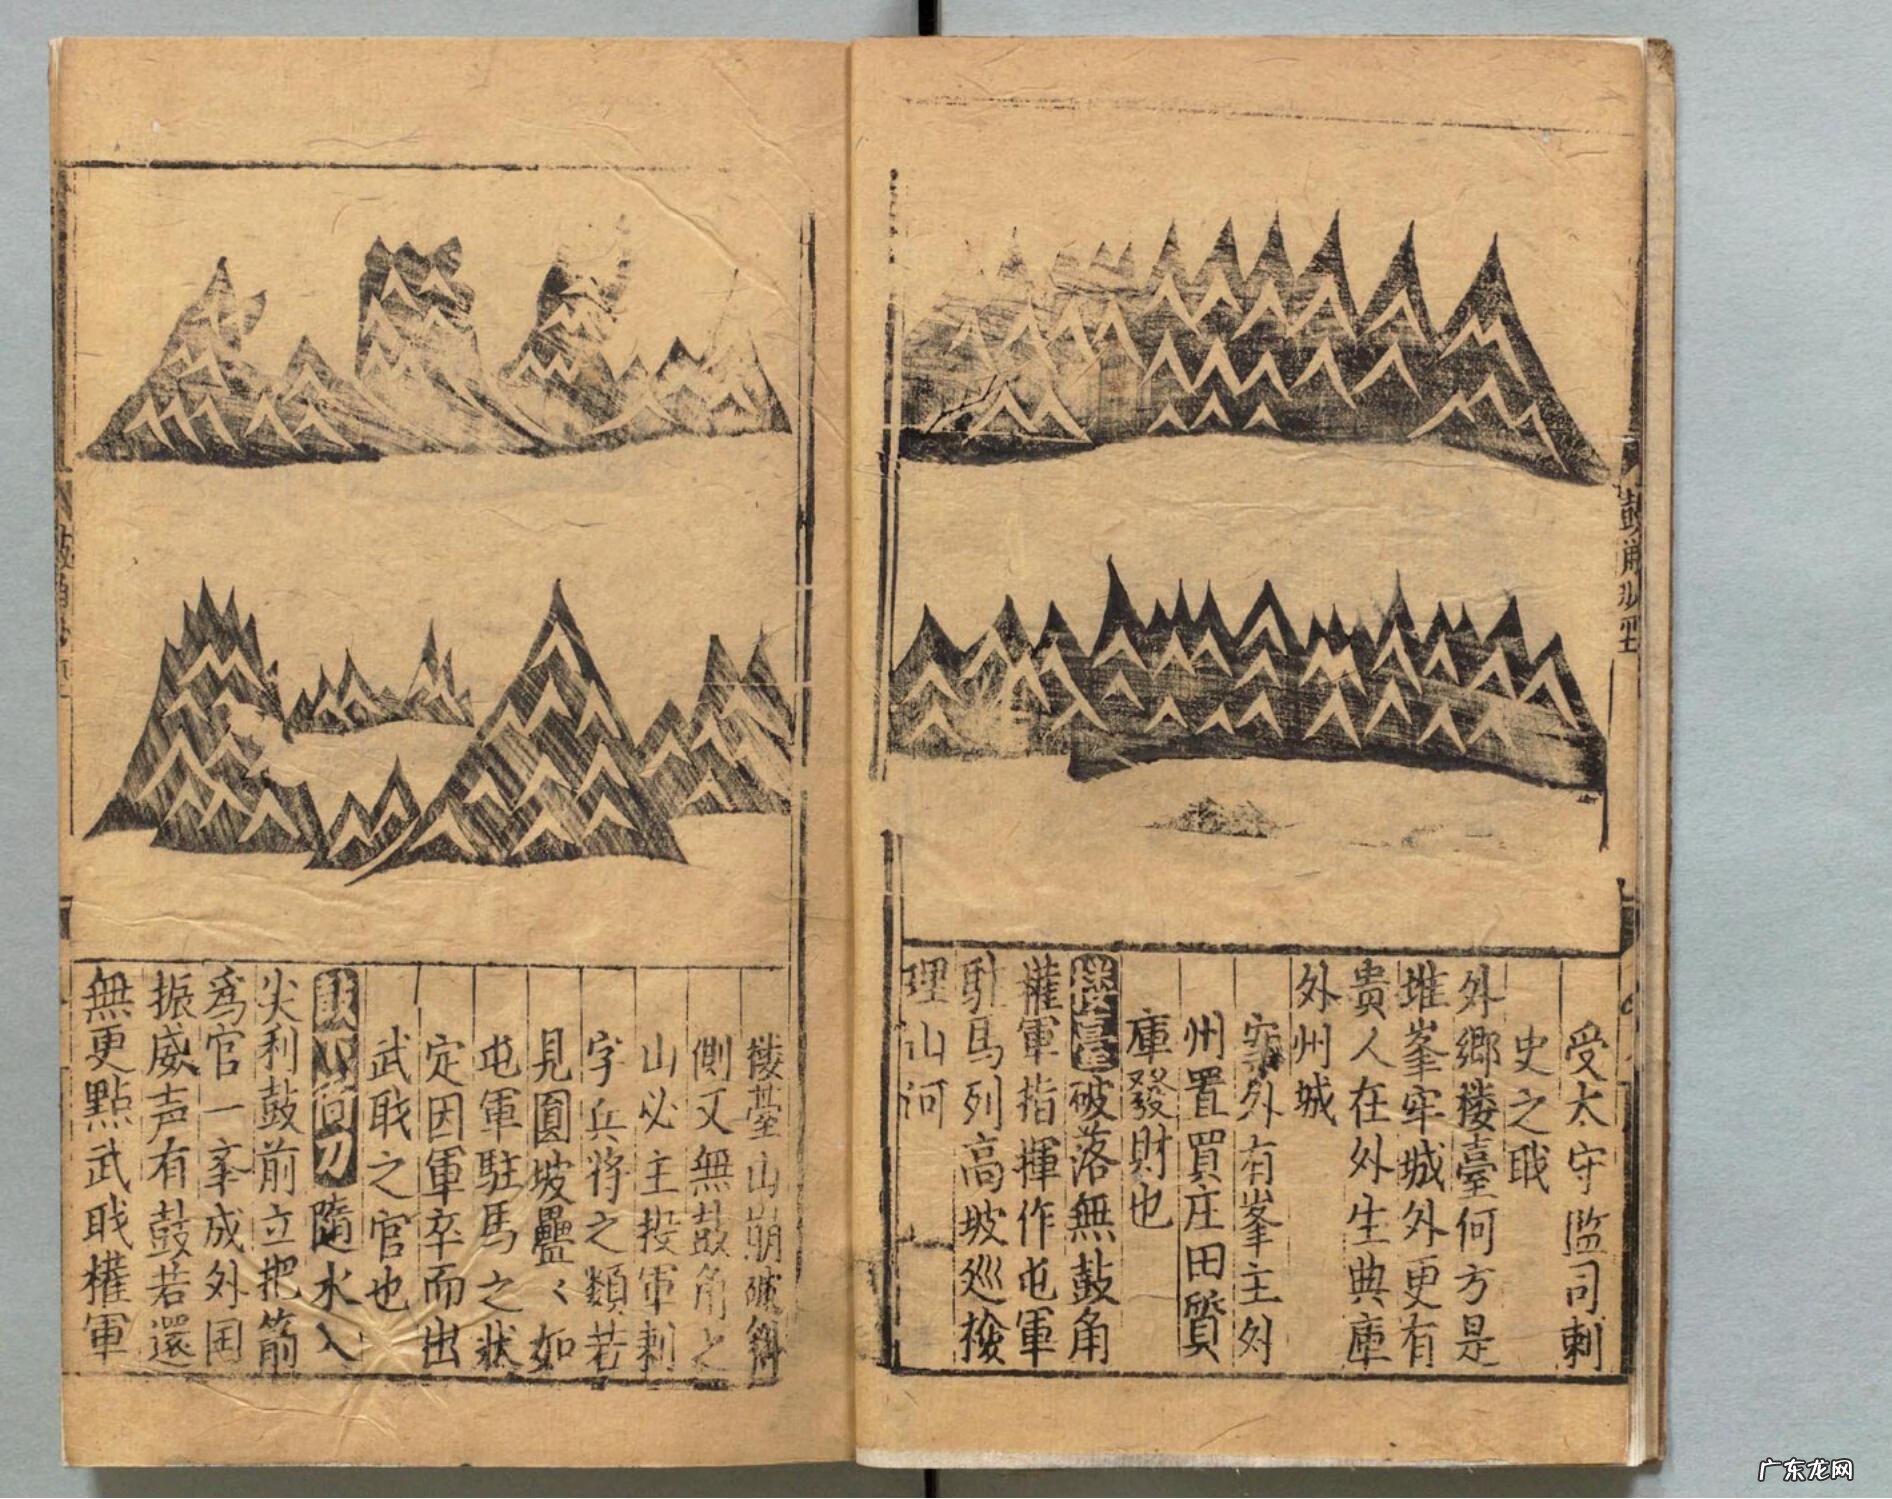 受太守監司刺
史之戝
外郷楼臺何方是
堆峯牢城外更有
貴人在外生典庫
外州城
案外有峯主外
州置買庄田質
庫發財也
楼臺破落無鼓角
權軍指揮作屯軍
駐馬列高坡巡撿
理山河
楼臺山崩破斜
側又無鼓角之
山必主投軍刺
字兵將之類若
見圓坡疊〻如
屯軍駐馬之狀
定因軍卒而出
武戝之官也
隨水入
尖利鼓前立把箭
爲官一峯成外国
振威声有鼓若還
無更點武戝權軍
广东龙网